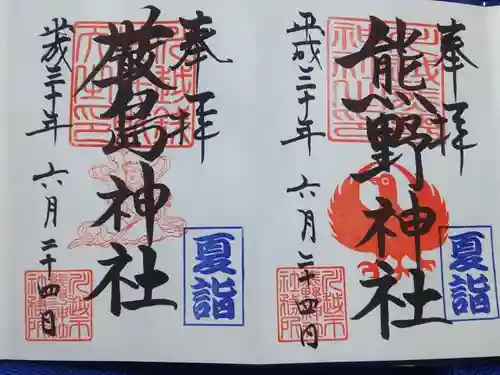 奉拝
夏詣
熊野神社
平成三十年 六月二十四日
奉拝
夏詣
厳島神社
平成三十年 六月二十四日